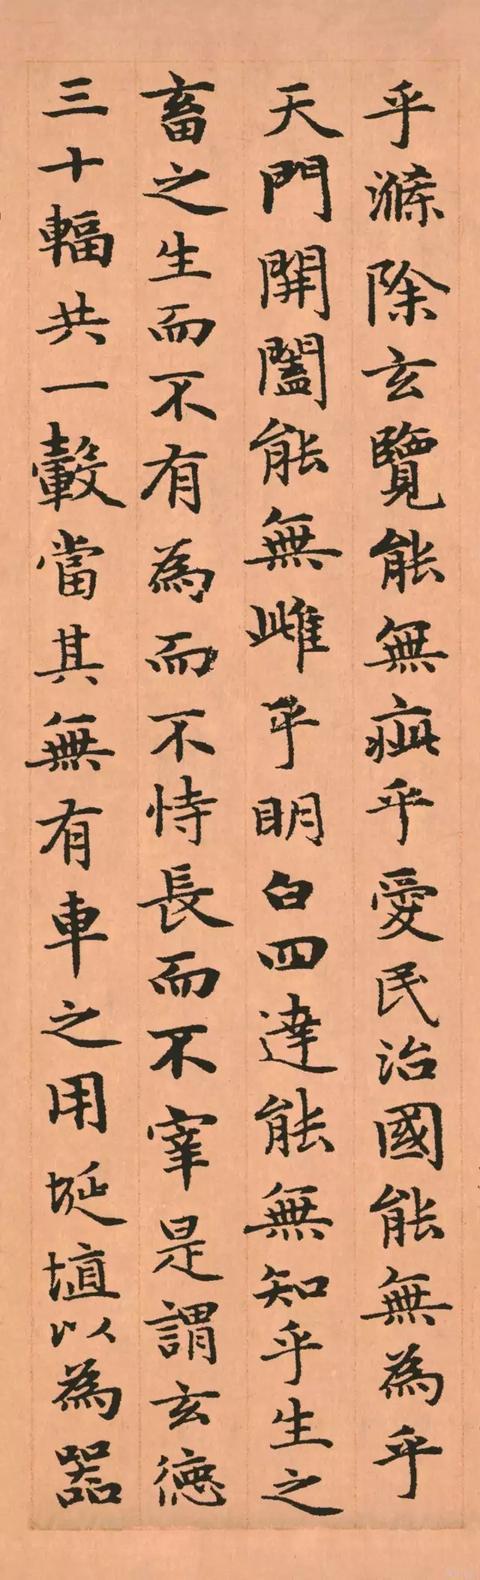 乎滌除玄覽能無疵乎愛民治國能無為乎
天門開闔能無雌乎明白四達能無知乎生之
畜之生而不有為而不恃長而不宰是謂玄德
三十輻共一轂當其無有車之用埏埴以為器